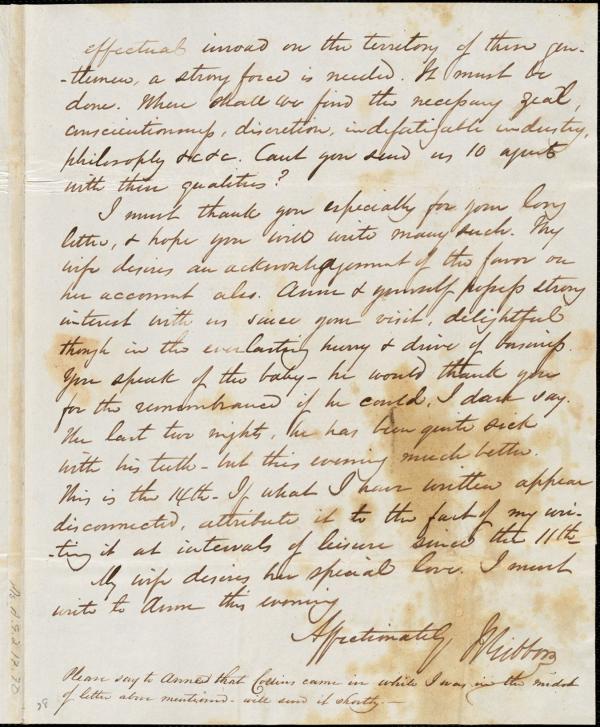 effectual inroad on the territory of these gen-
-tlemen, a strong force is needed. It must be
done. Where shall we find the necessary zeal,
conscientiousness, discretion, indefatigable industry,
philosophy &c &c. Cant you send us 10 agents
with these qualities?
I must thank you especially for your long
letter, & hope you will write many such. My
wife desires an acknowledgement of the favor on
her account also. Anne & yourself possess strong
interest with us since your visit, delightful
though in the everlasting hurry & drive of business.
You speak of the baby - he would thank you
for the remembrance if he could, I dare say.
The last two nights, he has been quite sick
with his teeth - but this evening much better.
This is the 14th - If what I have written appear
disconnected, attribute it to the fact of my wri-
-ting it at intervals of leisure since the 11th
My wife desires her special love. I must
write to Anne this evening
Affectionately J S Gibbons
Please say to Anne that Collins came in while I was in the midst
of letter above mentioned - will send it shortly -